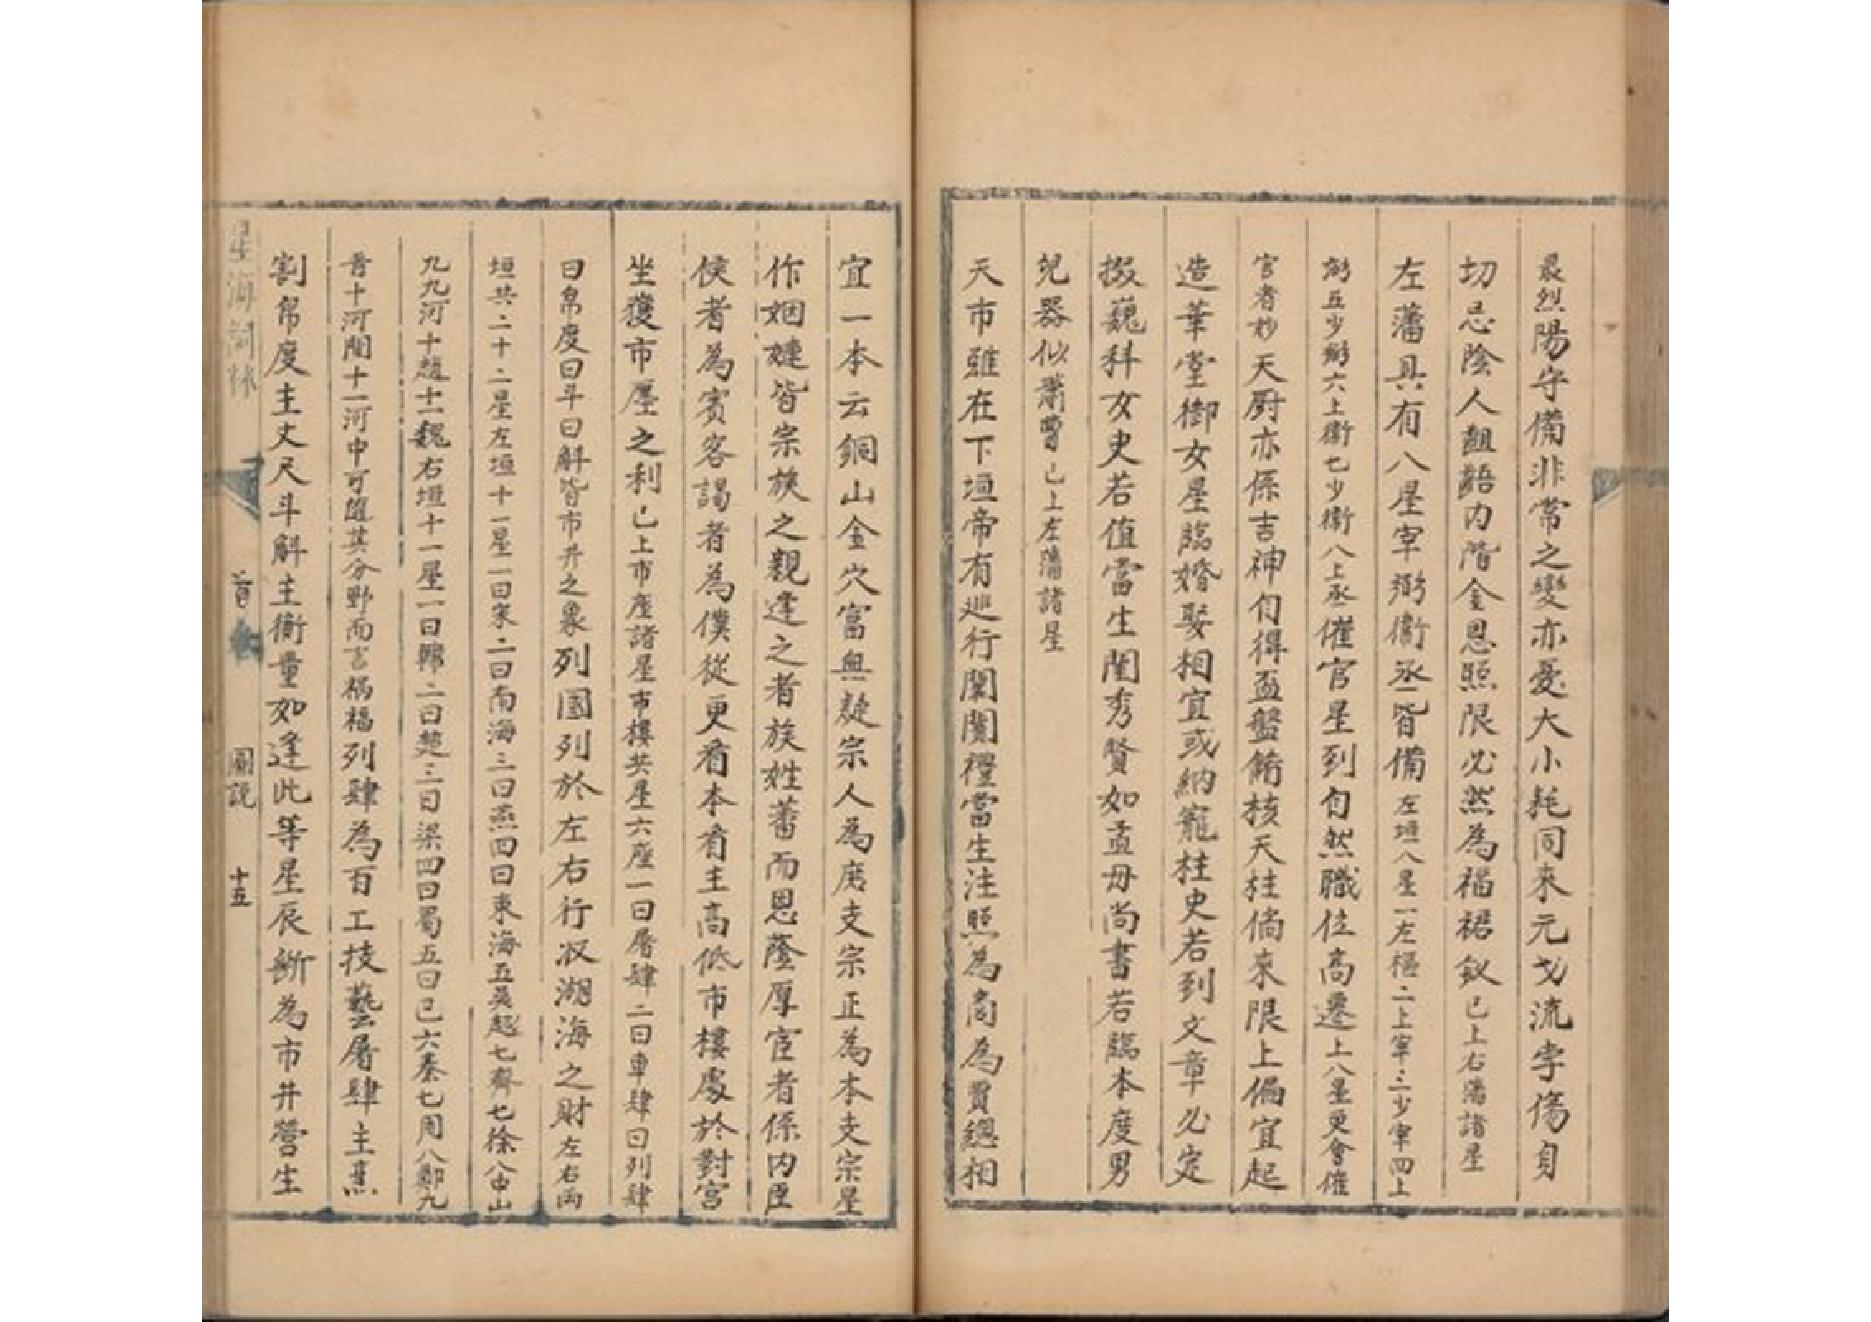 最烈陽守備非常之變亦憂大小耗同來元戈流孛傷身
切忌陰人齟齬內階金恩照限必然為福裙釵已上右藩諸星
左藩具有八星宰弼衞丞皆備左垣八星一左樞二上宰三少宰四上
弼五少弼六上衞七少衞八上丞催官星到自然職位高遷上八星更會催
官者妙天厨亦係吉神旬得盃盤餚核天柱倘來限上偏宜起
造華堂御女星臨婚娶相宜或納寵柱史若到文章必定
掇巍科女史若值當生閨秀賢如孟母尚書若臨本度男
兒器似蕭曹已上左藩諸星
天市雖在下垣帝有巡行闤闠禮當生注照為商為賈總相
宜一本云銅山金穴富無疑宗人為庶支宗正為本支宗星
作姻婕皆宗族之親逢之者族姓蕃而恩蔭厚宦者係內臣
侯者為賓客謁者為僕從更看本宥主高低市樓處於對宮
坐獲市廛之利已上市座諸星市樓共星六座一曰屠肆二曰車肆曰列肆
曰帛度曰斗曰斛皆市井之象列國列於左右行収湖海之財左右兩
垣共二十二星左垣十一星一曰宋二曰南海三曰燕四曰東海五吳越七齊七徐八中山
九九河十趙十一魏右垣十一星一曰韓二曰楚三曰梁四曰蜀五曰巴六秦七周八鄭九
晋十河間十一河中可隨其分野而言禍福列肆為百工技藝屠肆主烹
割帛度主丈尺斗斛主衡量如逢此等星辰斷為市井營生
星海詞林
首卷
圖說
十五